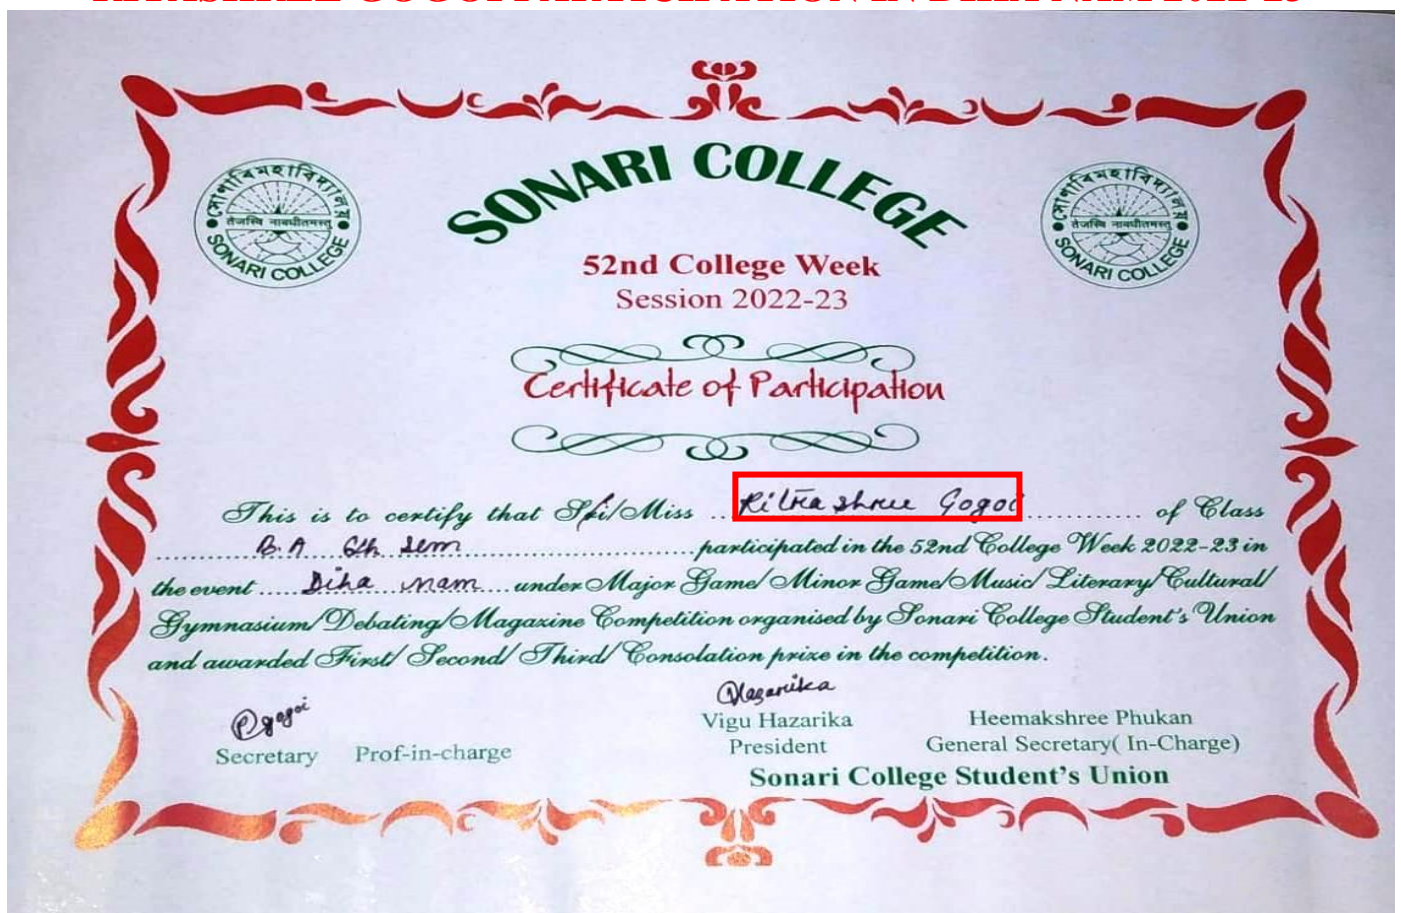 GOGOI PARTICIPATION IN DIHA NAM 2022-23
সোণাৰি মহাবিদ্যালয়
तेजस्वि नावधीतमस्तु
SONARI COLLEGE
SONARI COLLEGE
সোণাৰি মহাবিদ্যালয়
तेजस्वि नावधीतमस्तु
SONARI COLLEGE
52nd College Week
Session 2022-23
Certificate of Participation
This is to certify that Sri/Miss .. shree Gogoi .......... of Class
.......... B.A 6th Sem .......... participated in the 52nd College Week 2022-23 in
the event ..... Diha nam .... under Major Game/ Minor Game/Music/ Literary/Cultural/
Gymnasium/Debating/Magazine Competition organised by Sonari College Student's Union
and awarded First/ Second/ Third/ Consolation prize in the competition.
Pgogoi
Hazarika
Vigu Hazarika Heemakshree Phukan
Secretary Prof-in-charge President General Secretary( In-Charge)
Sonari College Student's Union